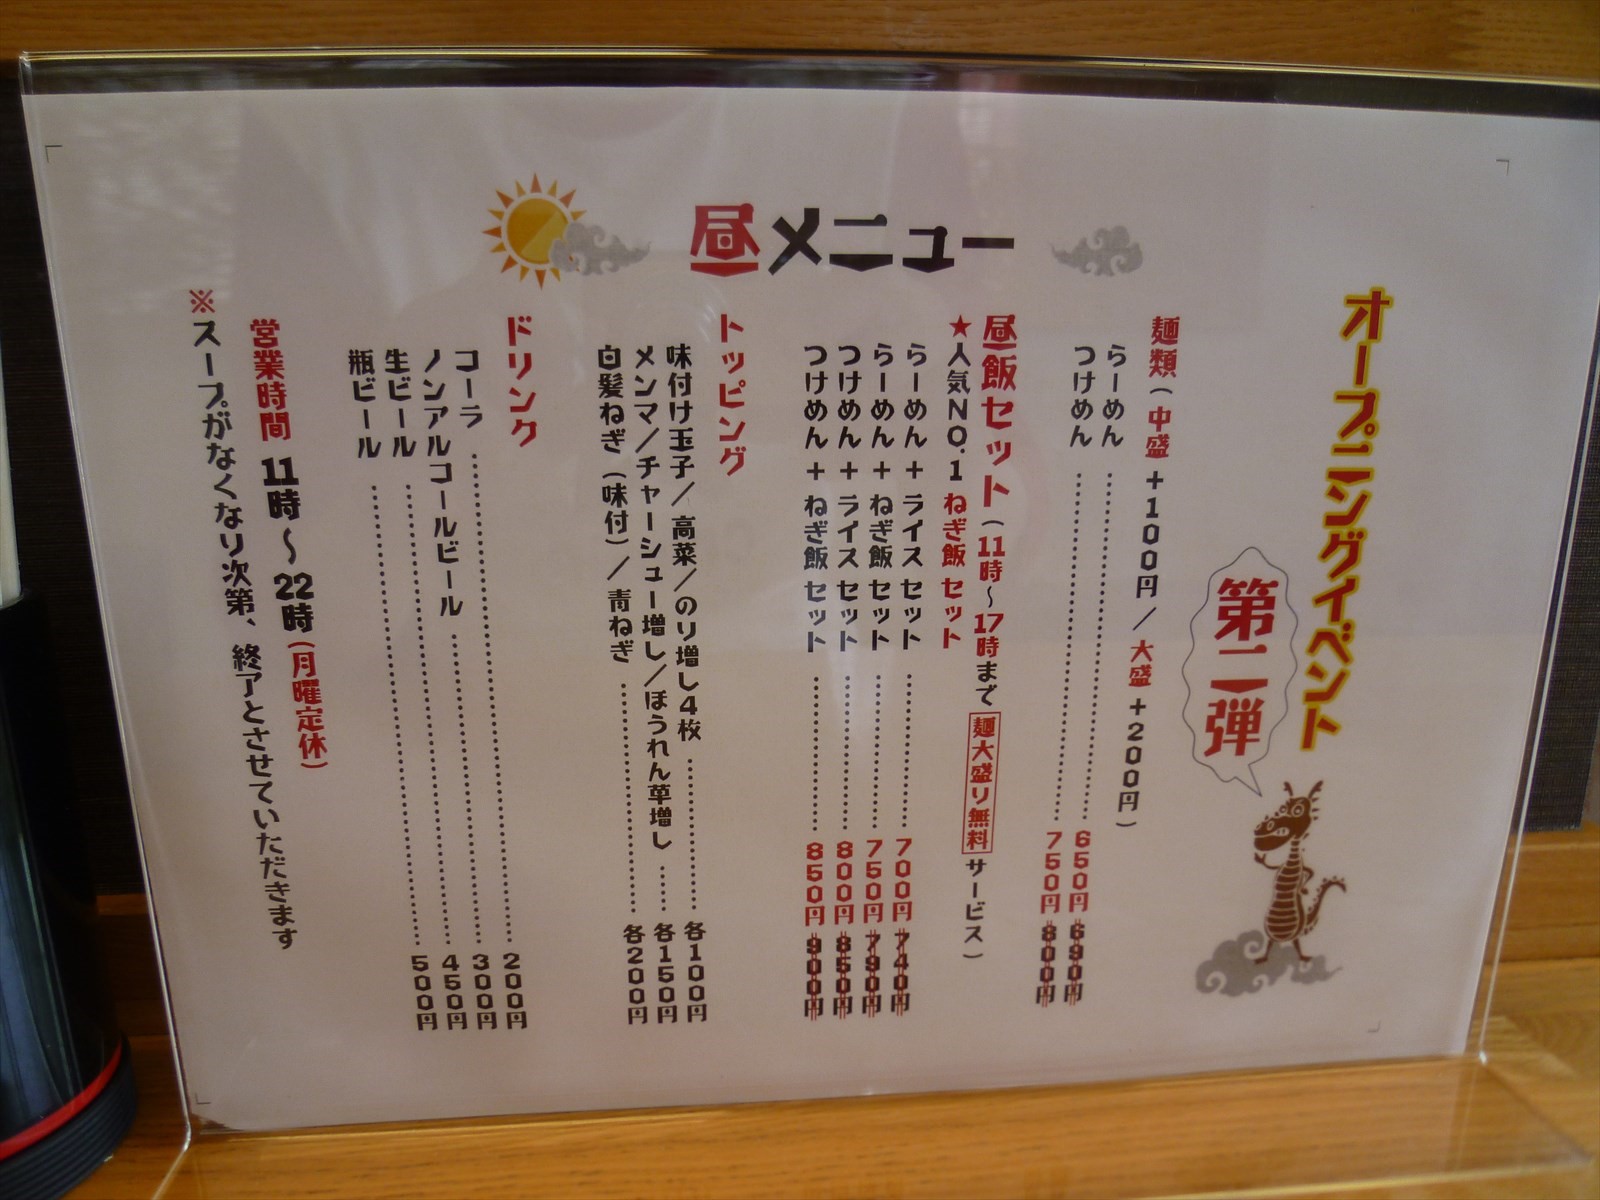 昼メニュー
オープニングイベント
第二弾
麺類(中盛+100円/大盛+200円)
らーめん 650円 690円
つけめん 750円 800円
昼飯セット(11時~17時まで 麺大盛り無料 サービス)
★人気NO.1 ねぎ飯セット
らーめん+ライスセット 700円 740円
らーめん+ねぎ飯セット 750円 790円
つけめん+ライスセット 800円 850円
つけめん+ねぎ飯セット 850円 900円
トッピング
味付け玉子/高菜/のり増し4枚 各100円
メンマ/チャーシュー増し/ほうれん草増し 各150円
白髪ねぎ(味付)/青ねぎ 各200円
ドリンク
コーラ 200円
ノンアルコールビール 300円
生ビール 450円
瓶ビール 500円
営業時間 11時~22時(月曜定休)
※スープがなくなり次第、終了とさせていただきます